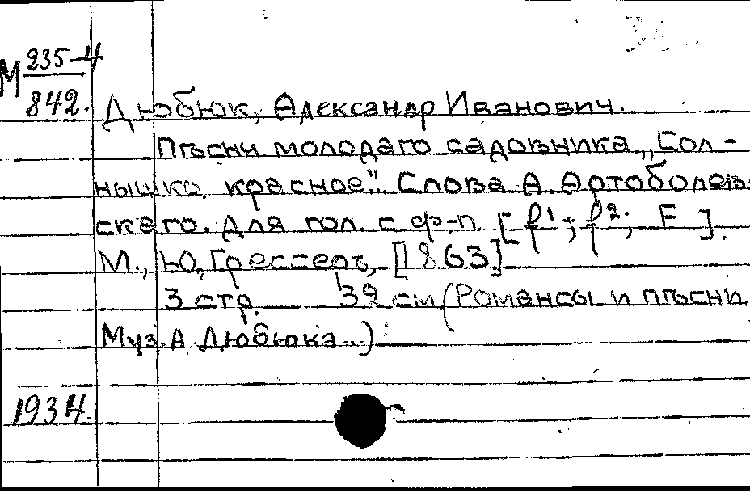 М 235-4
842.
Дюбюк, Александр Иванович.
Пѣсни молодаго садовника. „Сол-
нышко красное". Слова А. Артоболев-
скаго. Для гол. с ф-п. [f¹; f²; F].
М., Ю. Грессеръ, [1863]
3 стр. 32 см. (Романсы и пѣсни
Муз. А. Дюбюка...)
1934.